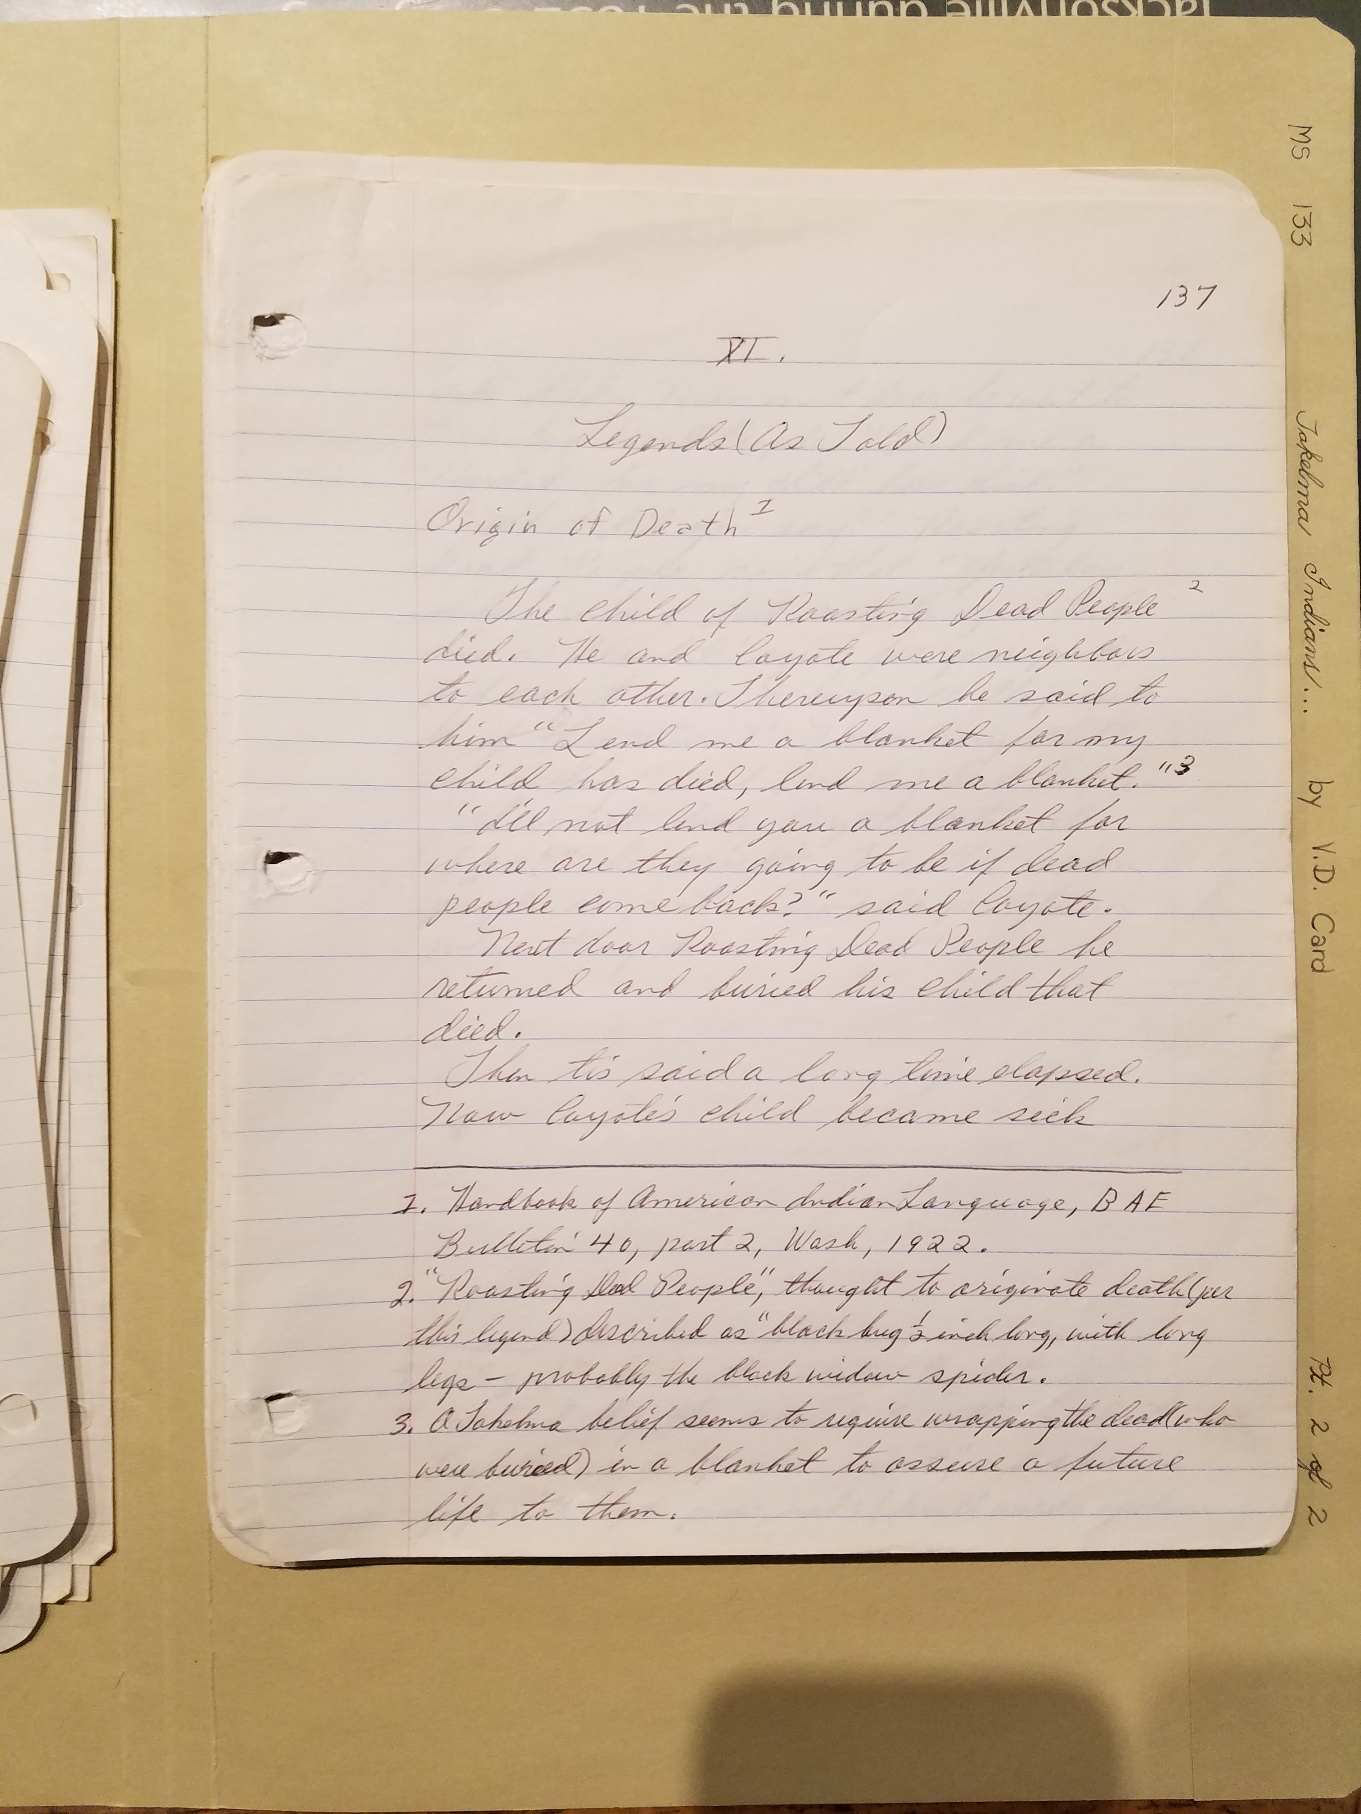 Jacksonville during the 1852
137
XI.
Legends (As Told)
Origin of Death 1
The child of Roasting Dead People 2
died. He and Coyote were neighbors
to each other. Thereupon he said to
him "Lend me a blanket for my
child has died, lend me a blanket." 3
"I'll not lend you a blanket for
where are they going to be if dead
people come back?" said Coyote.
Next door Roasting Dead People he
returned and buried his child that
died.
Then tis said a long time elapsed.
Now Coyote's child became sick
1. Handbook of American Indian Language, BAE
Bulletin 40, part 2, Wash, 1922.
2. "Roasting Dead People", thought to originate death (per
this legend) described as "black bug 1/2 inch long, with long
legs - probably the black widow spider.
3. A Takelma belief seems to require wrapping the dead (who
were buried) in a blanket to assure a future
life to them.
MS 133 Takelma Indians... by V.D. Card Pt. 2 of 2